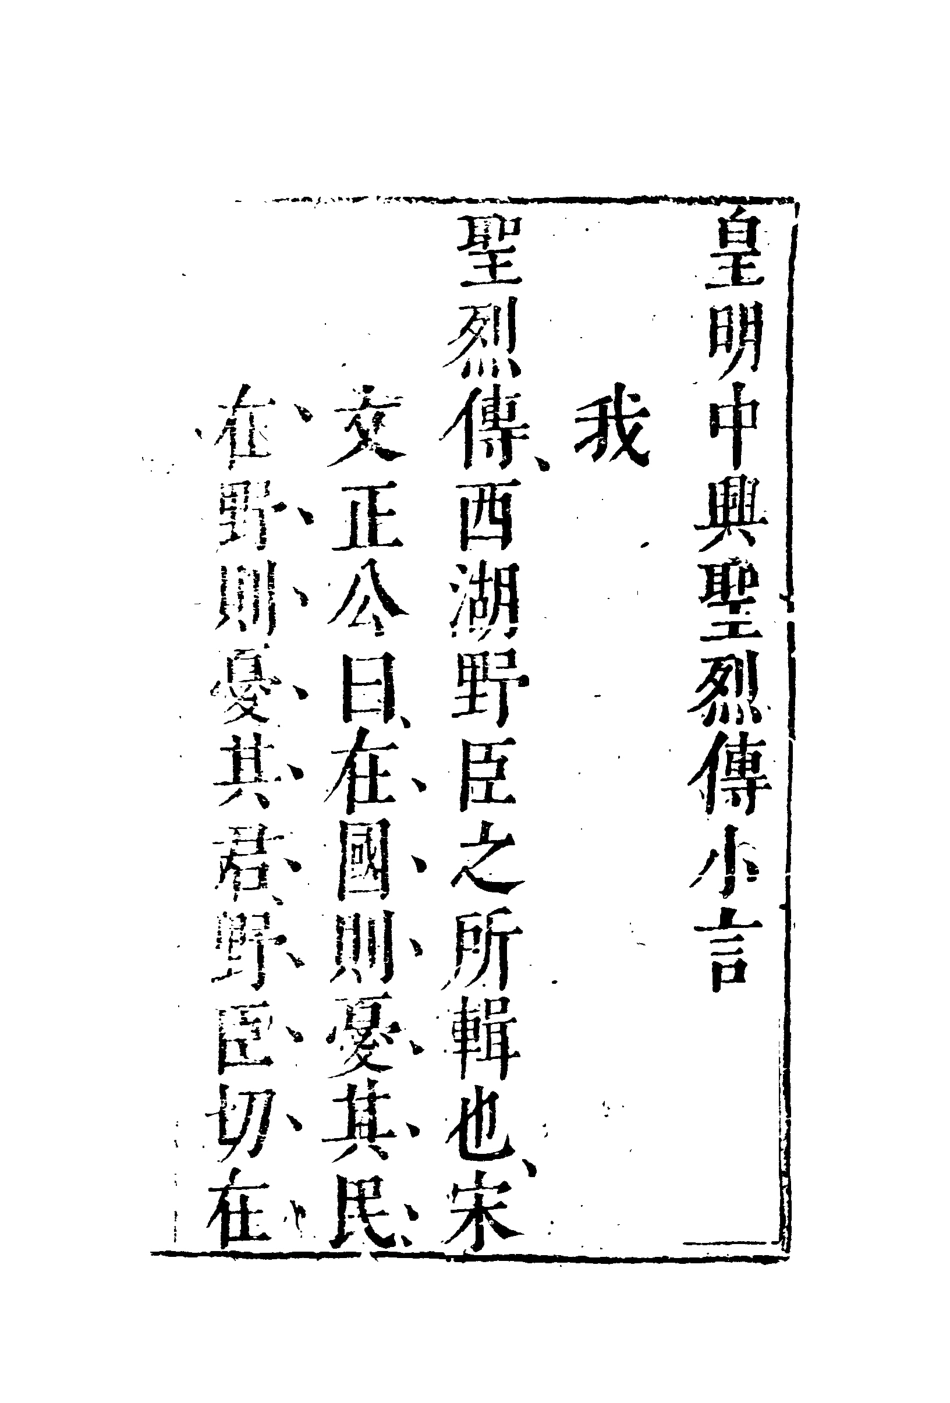 皇明中興聖烈傳小言
我
聖烈傳、西湖野臣之所輯也、宋
文正公曰、在國則憂其民、
在野則憂其君、野臣切在